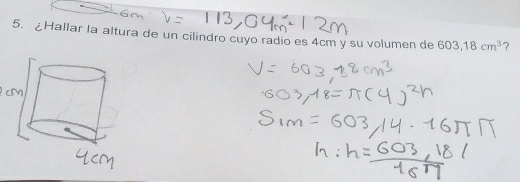 6m V = 113,04m² 12m
5. ¿Hallar la altura de un cilindro cuyo radio es 4cm y su volumen de 603,18 cm³?
V = 603,18 cm³
603,18 = π(4)²h
cm
Sim = 603,14 · 16π π
h : h = 603,18 /
16π
4cm